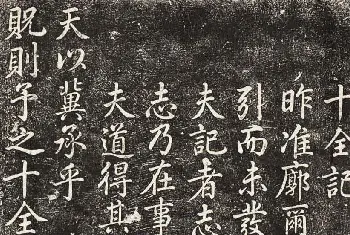 十全記
昨准廓爾
引而未發
夫記者志
志乃在事
夫道得其
天以冀承乎
貺則予之十全